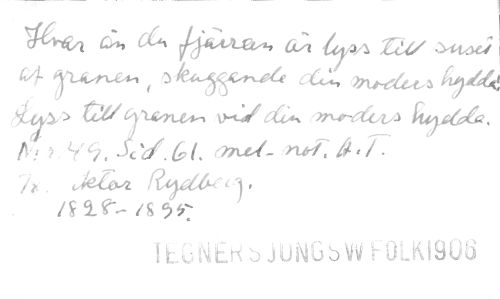 Hvar än du fjärran är lyss till suset
af granen, skuggande din moders hydda.
Lyss till granen vid din moders hydda.
Nr. 49. Sid. 61. mel-not. A.T.
Rydberg.
1828-1895.
TEGNER SJUNG SW FOLK 1906